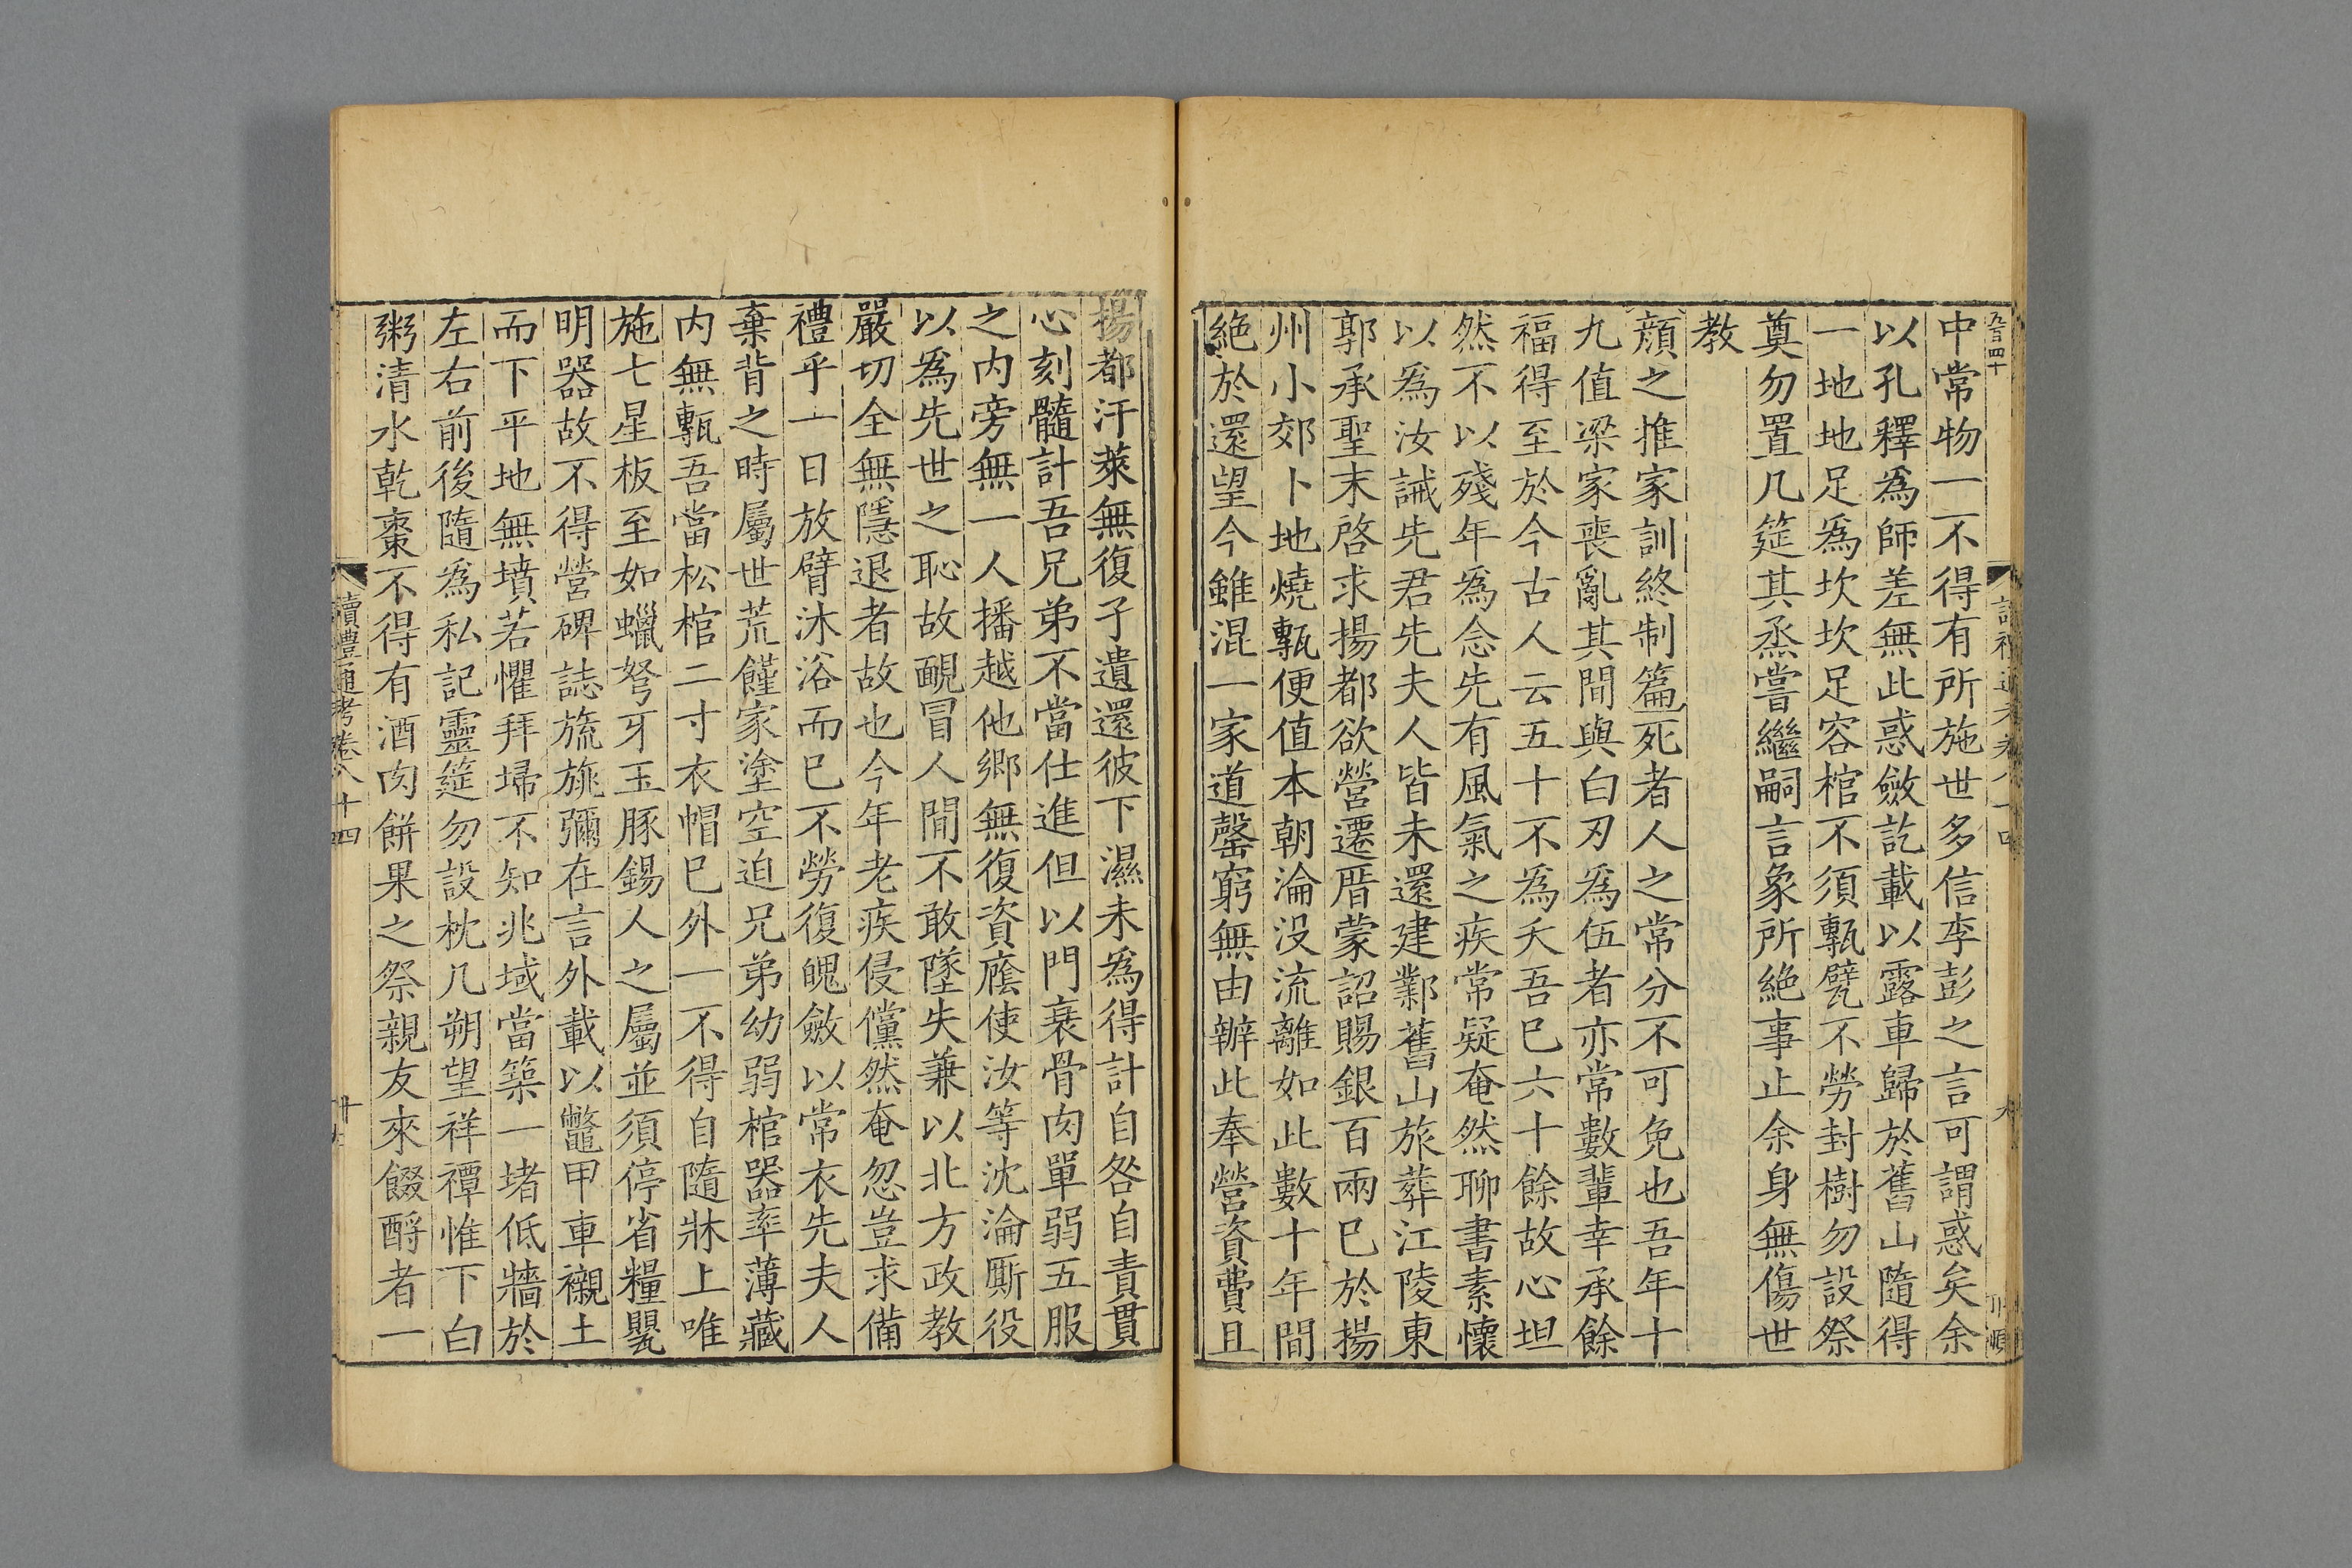 中常物一不得有所施世多信李彭之言可謂惑矣余
以孔釋爲師差無此惑斂訖載以露車歸於舊山隨得
一地地足爲坎坎足容棺不須甎甓不勞封樹勿設祭
奠勿置几筵其烝嘗繼嗣言象所絶事止余身無傷世
教
顔之推家訓終制篇死者人之常分不可免也吾年十
九值梁家喪亂其間與白刃爲伍者亦常數輩幸承餘
福得至於今古人云五十不爲夭吾已六十餘故心坦
然不以殘年爲念先有風氣之疾常疑奄然聊書素懷
以爲汝誡先君先夫人皆未還建鄴舊山旅葬江陵東
郭承聖末啓求揚都欲營遷厝蒙詔賜銀百兩已於揚
州小郊卜地燒甎便值本朝淪没流離如此數十年間
絶於還望今雖混一家道罄窮無由辦此奉營資費且
揚都汙萊無復孑遺還彼下濕未爲得計自咎自責貫
心刻髓計吾兄弟不當仕進但以門衰骨肉單弱五服
之内旁無一人播越他鄉無復資廕使汝等沈淪厮役
以爲先世之恥故靦冒人間不敢墜失兼以北方政教
嚴切全無隱退者故也今年老疾侵儻然奄忽豈求備
禮乎一日放臂沐浴而已不勞復魄斂以常衣先夫人
棄背之時屬世荒饉家塗空迫兄弟幼弱棺器率薄藏
内無甎吾當松棺二寸衣帽已外一不得自隨牀上唯
施七星板至如蠟弩牙玉豚錫人之屬並須停省糧甖
明器故不得營碑誌旒旐彌在言外載以鼈甲車襯土
而下平地無墳若懼拜埽不知兆域當築一堵低牆於
左右前後隨爲私記靈筵勿設枕几朔望祥禫惟下白
粥清水乾棗不得有酒肉餅果之祭親友來餟酹者一
讀禮通考卷八十四